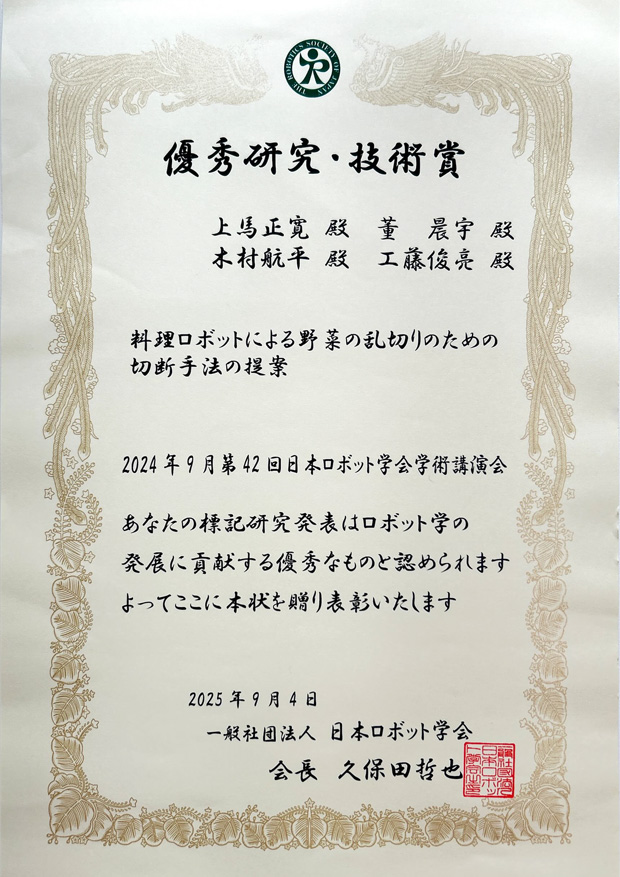 THE ROBOTICS SOCIETY OF JAPAN
優秀研究・技術賞
上馬正寛 殿 董 晨宇 殿
木村航平 殿 工藤俊亮 殿
料理ロボットによる野菜の乱切りのための
切断手法の提案
2024年9月第42回日本ロボット学会学術講演会
あなたの標記研究発表はロボット学の
発展に貢献する優秀なものと認められます
よってここに本状を贈り表彰いたします
2025年9月4日
一般社団法人 日本ロボット学会
会長 久保田哲也